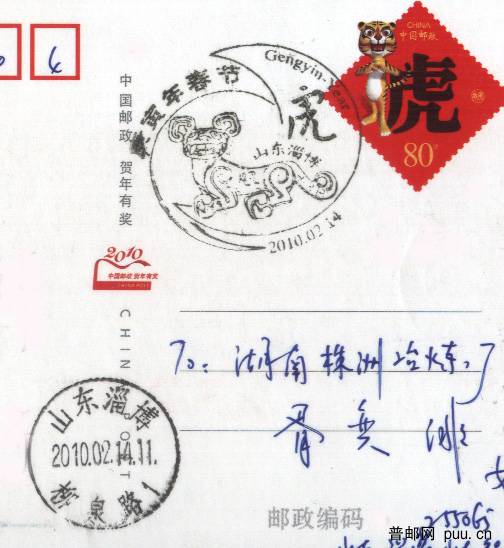 4
CHINA
中国邮政
虎
80
庚寅年春节
Gengyin Year
虎
山东淄博
2010.02.14
中国邮政 贺年有奖
2010
中国邮政 贺年有奖
CHINA POST
CHIN
POST
To: 湖南株洲冶炼厂
山东淄博
2010.02.14.11.
泉路1
邮政编码
普邮网 puu.cn